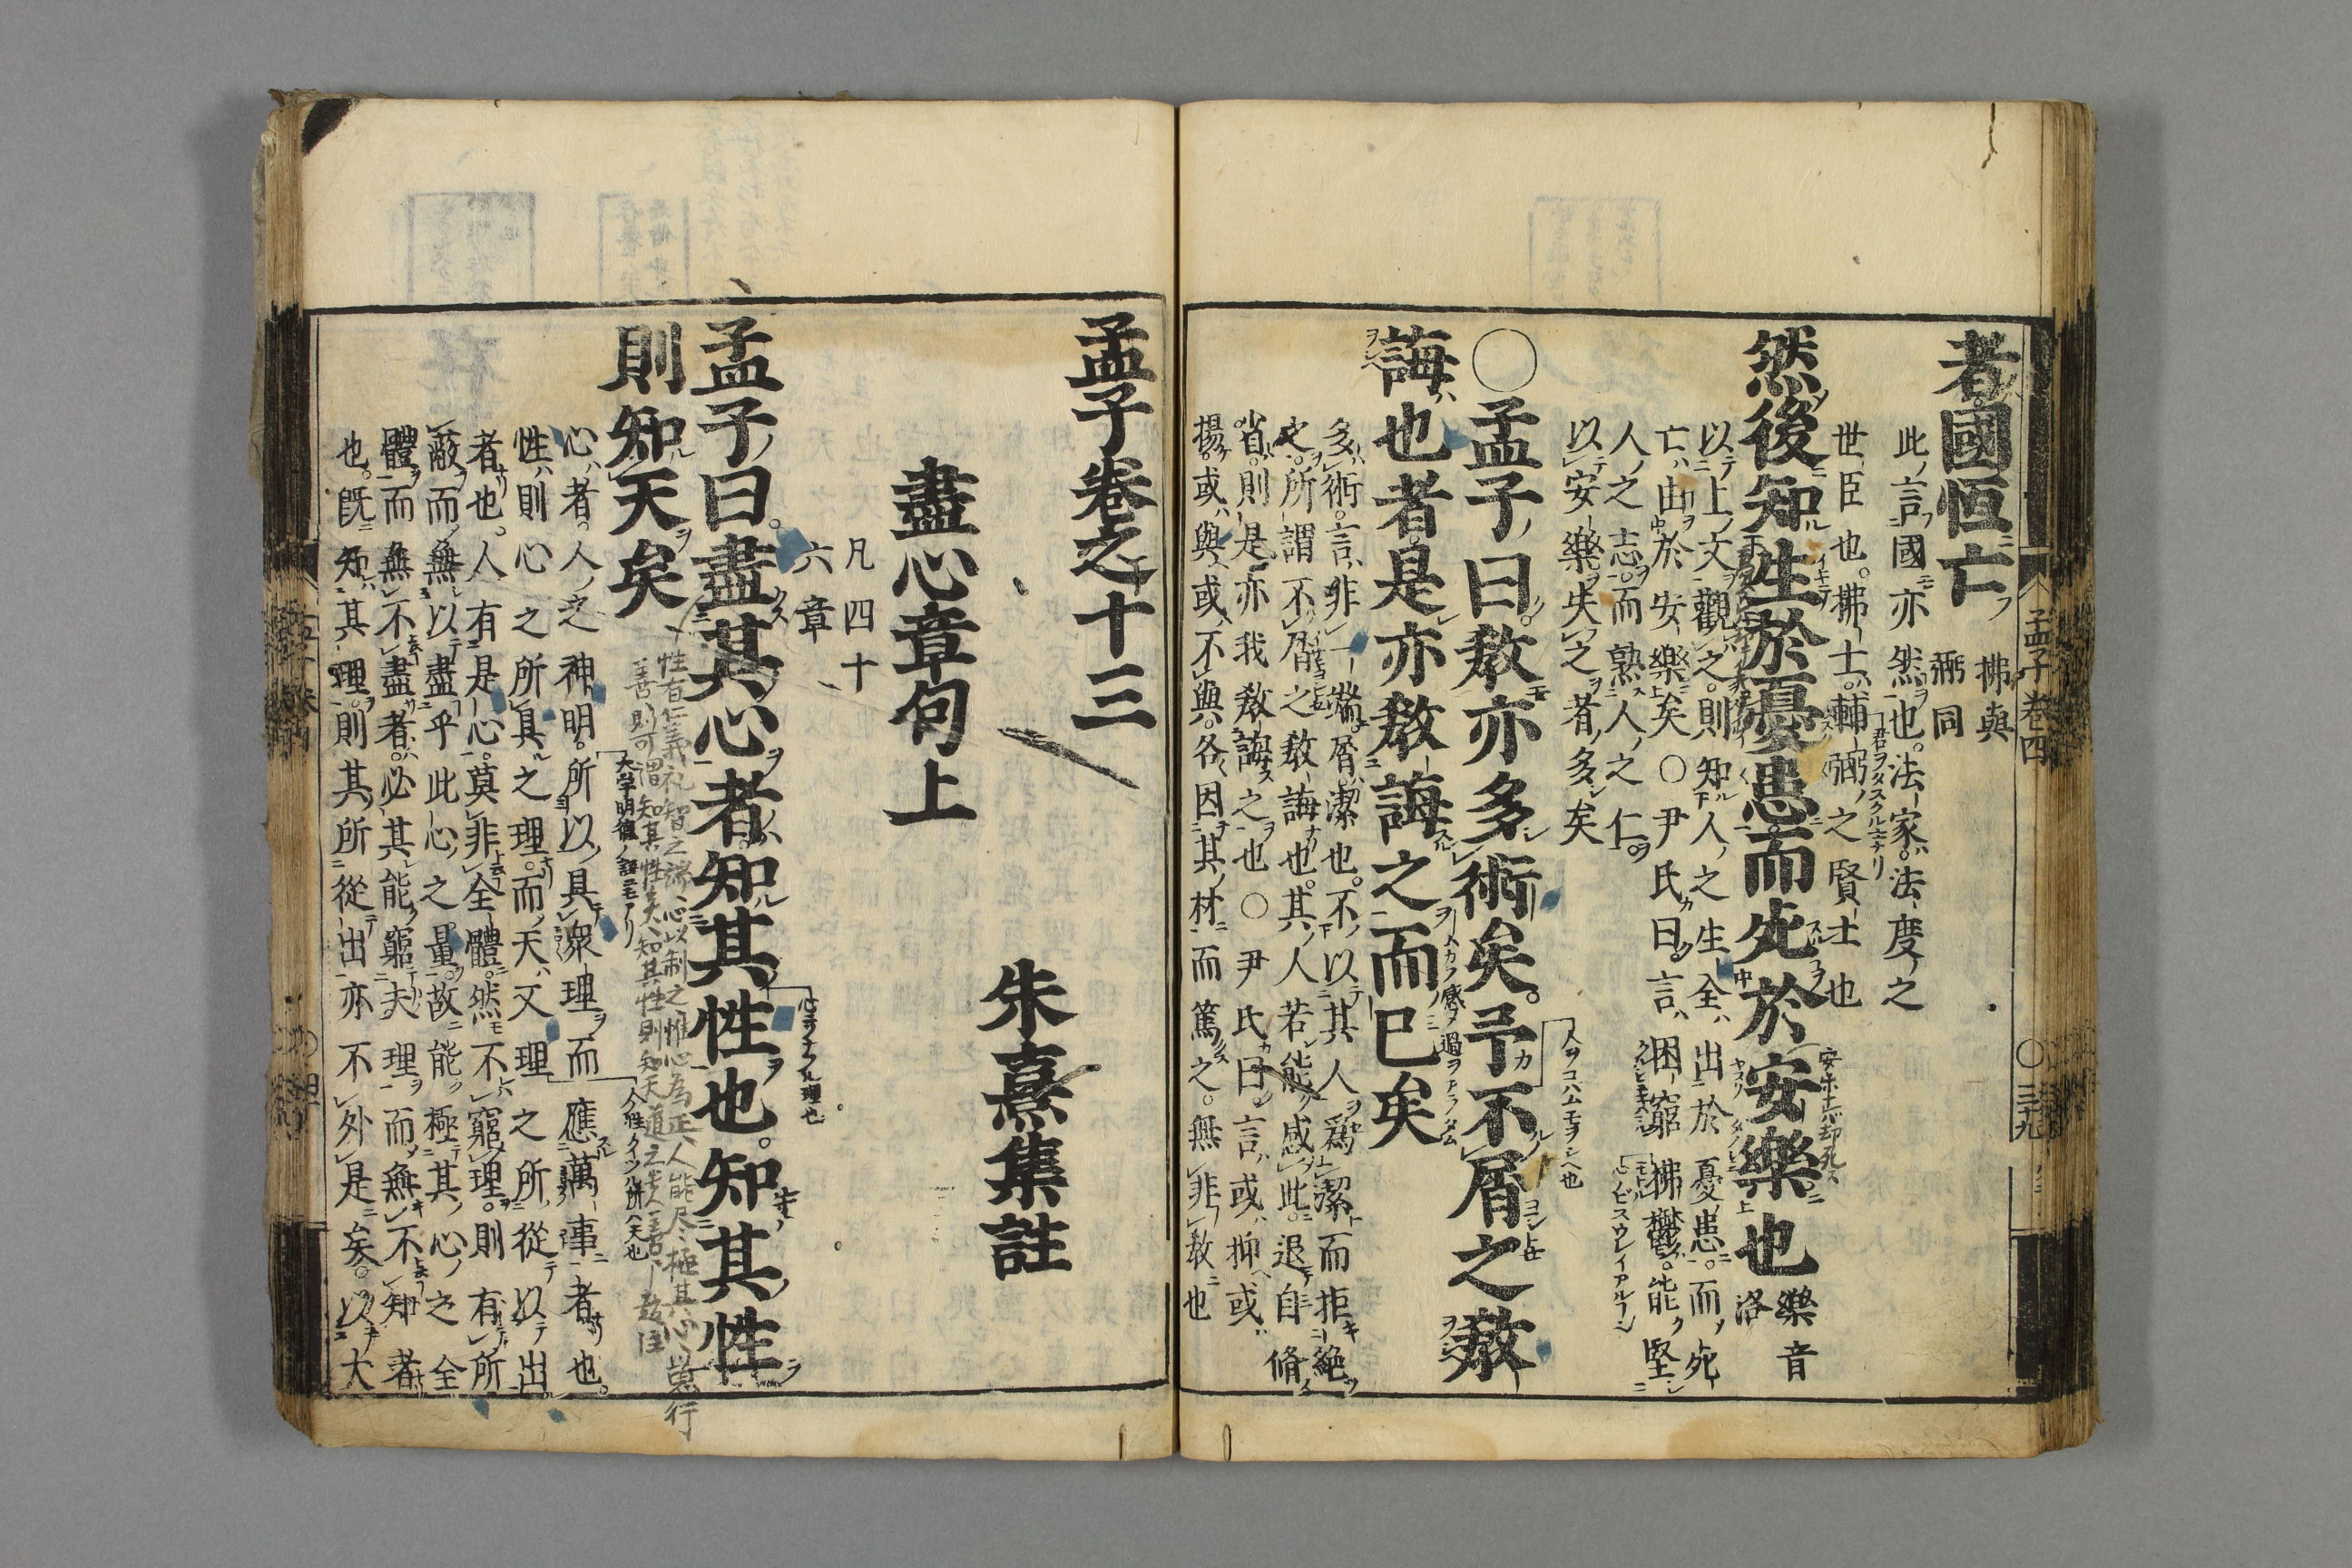 者國恒亡
拂與
弼同
此言國亦然也法家法度之
世臣也拂士輔弼之賢士也
然後知生於憂患而死於安樂也
樂音
洛
以上文觀之則知人之生全出於憂患而死
亡由於安樂矣○尹氏曰言困窮拂鬱能堅
人之志而熟人之仁
以安樂失之者多矣
○孟子曰敎亦多術矣予不屑之敎
誨也者是亦敎誨之而已矣
多術言非一端屑潔也不以其人爲潔而拒絶
之所謂不屑之敎誨也其人若能感此退自脩
省則是亦我敎誨之也○尹氏曰言或抑或
揚或與或不與各因其材而篤之無非敎也
孟子卷四
三十九
孟子卷之十三
朱熹集註
盡心章句上
凡四十
六章
孟子曰盡其心者知其性也知其性
則知天矣
心者人之神明所以具衆理而應萬事者也
性則心之所具之理而天又理之所從以出
者也人有是心莫非全體然不窮理則有所
蔽而無以盡乎此心之量故能極其心之全
體而無不盡者必其能窮夫理而無不知者
也旣知其理則其所從出亦不外是矣以大